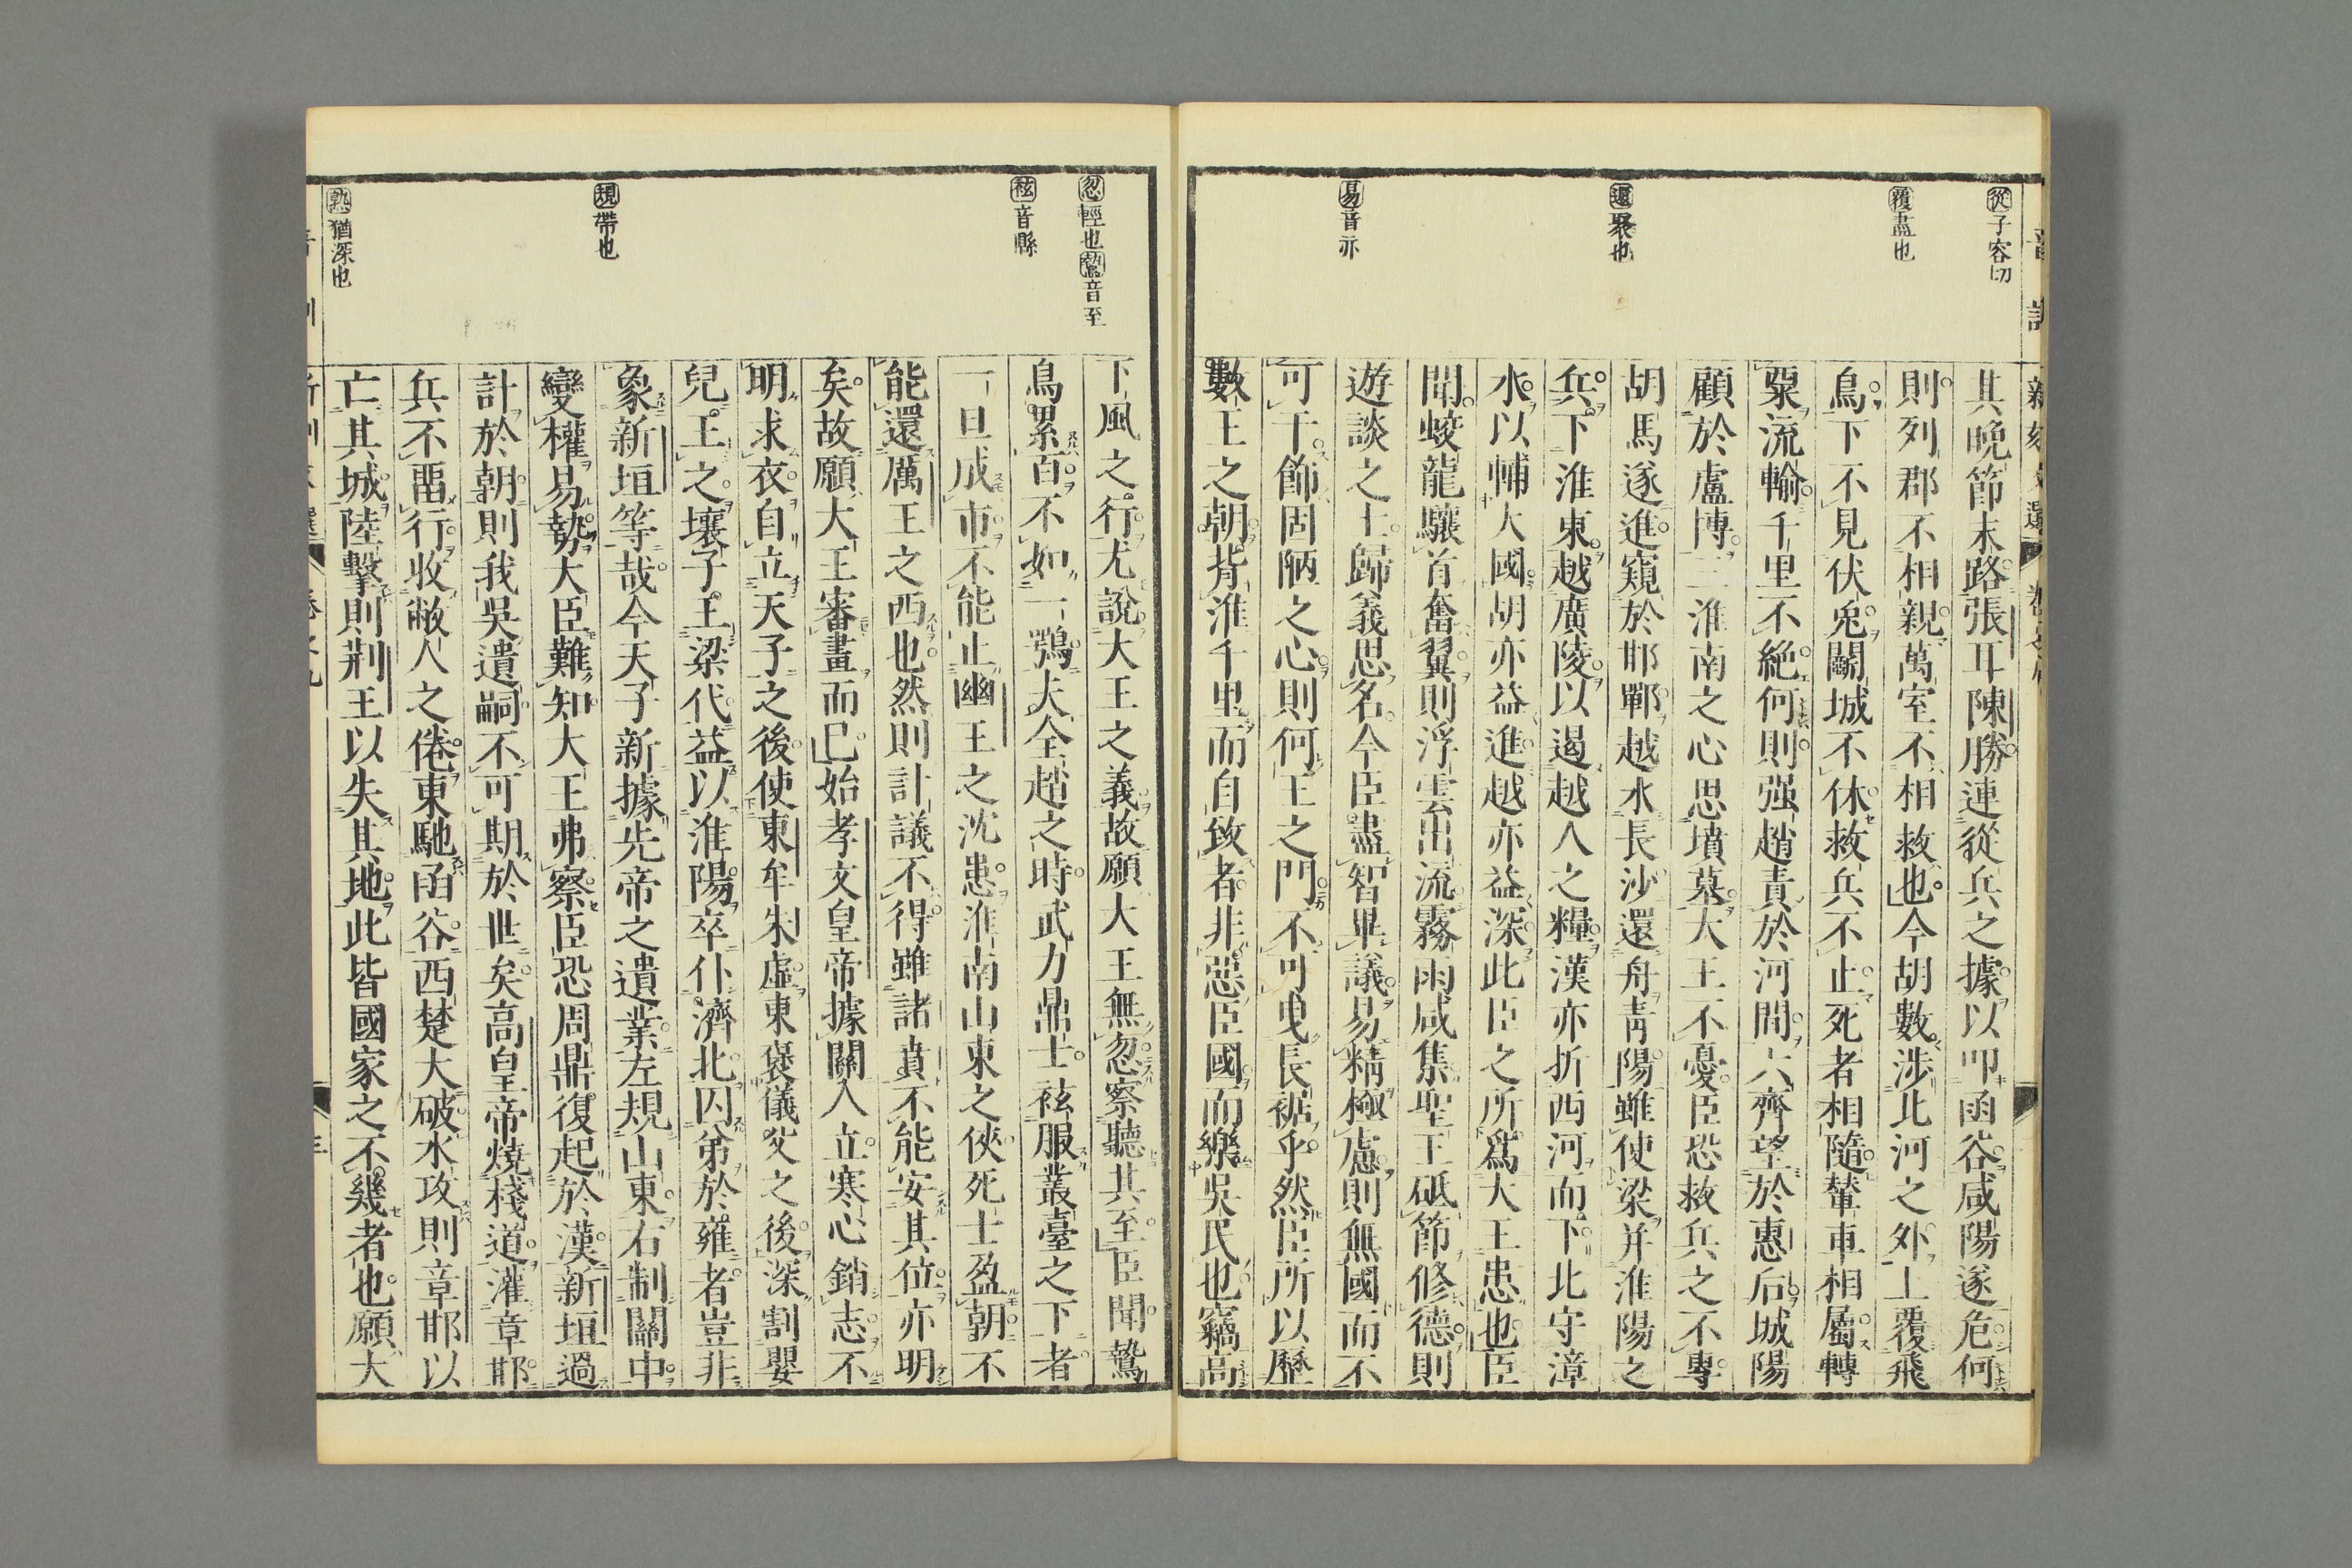 從子容切
覆盡也
還聚也
易音亦
其晩節末路張耳陳勝連從兵之據以叩函谷咸陽遂危何
則列郡不相親萬室不相救也今胡數涉北河之外上覆飛
鳥下不見伏兎鬭城不休救兵不止死者相隨輦車相屬轉
粟流輸千里不絶何則强趙責於河間六齊望於惠后城陽
顧於盧博三淮南之心思墳墓大王不憂臣恐救兵之不專
胡馬遂進窺於邯鄲越水長沙還舟青陽雖使梁并淮陽之
兵下淮東越廣陵以遏越人之糧漢亦折西河而下北守漳
水以輔大國胡亦益進越亦益深此臣之所爲大王患也臣
聞蛟龍驤首奮翼則浮雲出流霧雨咸集聖王砥節修德則
遊談之士歸義思名今臣盡智畢議易精極慮則無國而不
可干飾固陋之心則何王之門不可曳長裾乎然臣所以歷
數王之朝背淮千里而自致者非惡臣國而樂吳民也竊高
忽輕也鷙音至
袨音縣
規帶也
熟猶深也
下風之行尤說大王之義故願大王無忽察聽其至臣聞鷙
鳥累百不如一鶚夫全趙之時武力鼎士袨服叢臺之下者
一旦成市不能止幽王之沈患淮南山東之俠死士盈朝不
能還厲王之西也然則計議不得雖諸賁不能安其位亦明
矣故願大王審畫而已始孝文皇帝據關入立寒心銷志不
明求衣自立天子之後使東牟朱虛東褒儀父之後深割嬰
兒王之壤子王梁代益以淮陽卒仆濟北囚弟於雍者豈非
象新垣等哉今天子新據先帝之遺業左規山東右制關中
變權易勢大臣難知大王弗察臣恐周鼎復起於漢新垣過
計於朝則我吳遺嗣不可期於世矣高皇帝燒棧道灌章邯
兵不畱行收敝人之倦東馳函谷西楚大破水攻則章邯以
亡其城陸擊則荆王以失其地此皆國家之不幾者也願大